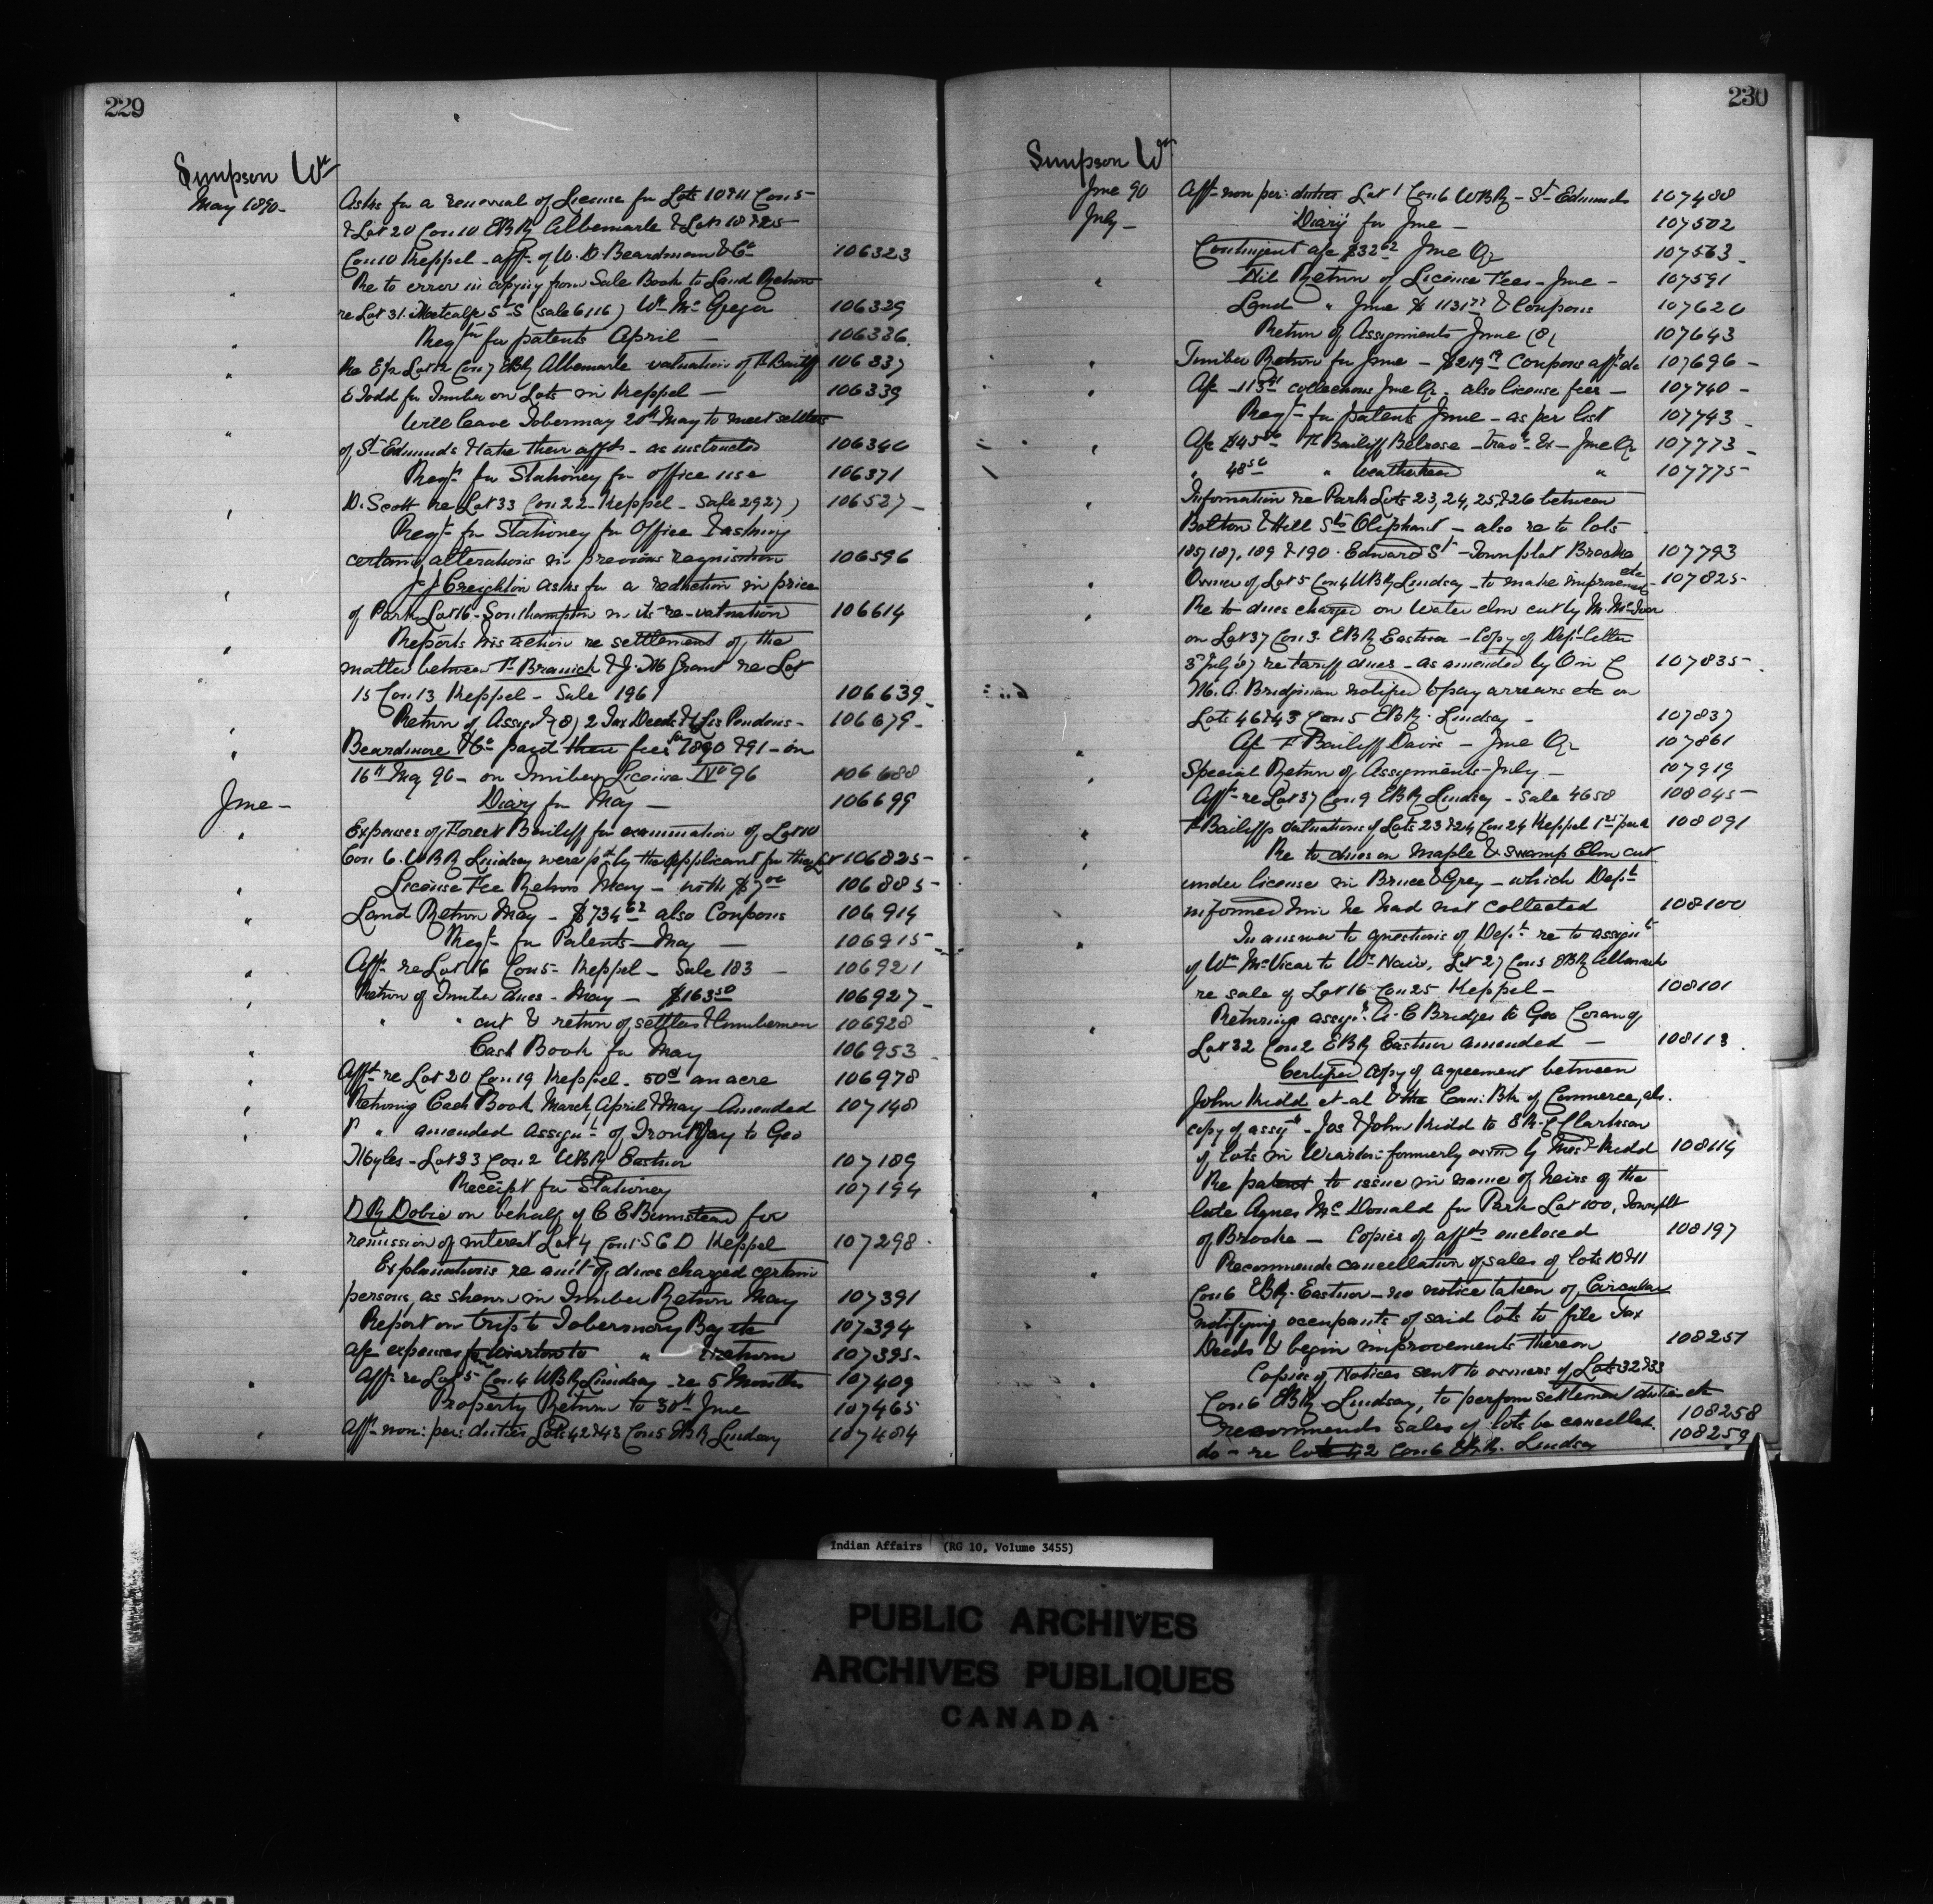 229
Simpson Wm
May 1890 - Asks for a renewal of License for Lots 10 & 11 Con 5
& Lot 20 Con 10 EBR Albemarle & Lots 18 & 25
Con 10 Keppel - appn of W. D. Beardmore & Co 106323
" Re to error in copying from Sale Book to Land Return
re Lot 31. Metcalfe St S (sale 6116) Wm McGregor 106329
" Reqn for patents April - 106336
" Re E½ Lot Con 7 EBR Albemarle valuation of F. Bailiff 106337
E Todd for Timber on Lots in Keppel - 106339
" Will leave Tobermory 20th May to meet settlers
of St Edmunds & take their affts - as instructed 106340
Reqn for Stationery for office use 106371
" D. Scott re Lot 33 Con 22 Keppel - Sale 2927) 106527 -
Reqn for Stationery for Office & asking
certain alterations in previous requisition 106596
" J J Creighton asks for a reduction in price
of Park Lot 16 - Southampton in its re-valuation 106614
" Reports his action re settlement of the
matter between T. Branick & J. M Grant re Lot
" 15 Con 13 Keppel - Sale 1961 106639 -
" Return of Assignts (8) 2 Tax Deeds & 1 Lis Pendens - 106679 -
" Beardmore & Co paid their fees for 1890 & 91 - on
16th May 90 - on Timber License No 96 106688
June - Diary for May - 106699
" Expenses of Forest Bailiff for examination of Lot 10
Con 6. WBR Lindsay were pd by the applicant for the Lot 106825 -
" License Fee Return May - with $7.00 106885 -
" Land Return May - $734.62 also Coupons 106914
Reqn for Patents - May - 106915 -
" Afft re Lot 16 Con 5 - Keppel - Sale 183 - 106921
" Return of Timber dues - May - $163.50 106927 -
" " cut & return of settlers & lumbermen 106928
" Cash Book for May 106953
" Afft re Lot 20 Con 19 Keppel - 50cts an acre 106978
" Returning Cash Book March, April & May Amended 107148
" " amended Assignt of Gray to Geo
Myles - Lot 33 Con 2 WBR Eastnor 107189
Receipt for Stationery 107194
" D R Dobie on behalf of C E Bumstead for
remission of interest Lot 4 Con 1 S C D Keppel 107298 -
" Explanations re amt of dues charged certain
persons, as shewn in Timber Return May 107391
Report on trip to Tobermory Bay etc 107394
a/c expenses from Wiarton to " & return 107395 -
" Afft re Lot 5 Con 4 WBR Lindsay - re 5 Months 107409
Property Return to 30th June 107465
" Afft non: per: duties Lots 42 & 43 Con 5 EBR Lindsay 107484
230
Simpson Wm
June 90 Afft non per: duties Lot 1 Con 6 WBR - St Edmunds 107488
July - Diary for June - 107502
Contingent a/c $32.62 June Qr 107563 -
" Nil Return of License Fees - June - 107591
Land " June $1131.77 & Coupons 107620
Return of Assignments June (8( 107643
" Timber Return for June - $219.19 Coupons affts etc 107696 -
" A/c collections June Qr - also license fees - 107740 -
Reqn for patents June - as per list 107743 -
" A/c $45 F. Bailiff Belrose - trav. Ex - June Qr 107773 -
" 48.50 " Weatherhead " 107775
" Information re Park Lots 23, 24, 25 & 26 between
Bolton & Hill Sts Oliphant - also re to lots
185, 187, 189 & 190 - Edward St - Townplot Brooke 107793
" Owner of Lot 5 Con 4 WBR Lindsay - to make improvements etc 107825 -
" Re to dues charged on Water elm cut by M. McIver
on Lot 37 Con 3 EBR Eastnor - Copy of Dept letter
3 July 87 re tariff dues - as amended by O in C 107835 -
M. A. Bridgman notified to pay arrears etc on
Lots 46 & 43 Con 5 EBR - Lindsay - 107837
" A/c F Bailiff Davis - June Qr 107861
" Special Return of Assignments - July - 107919
Afft re Lot 37 Con 9 EBR Lindsay - Sale 4658 108045 -
" F Bailiffs valuations of Lots 23 & 24 Con 24 Keppel 108091
" Re to dues on Maple & Swamp Elm cut
under license in Bruce & Grey - which Dept
informed him he had not collected 108100
" In answer to questions of Dept re to assignt
of Wm McVicar to Wm Nair, Lot 27 Con 5 EBR Albemarle
re sale of Lot 16 Con 25 Keppel - 108101
" Returning assignt A. C Bridges to Geo
Lot 32 Con 2 EBR Eastnor amended - 108113
Certified Copy of agreement between
John Kidd et al & the Can: Bk of Commerce, als.
copy of assignt - Jas & John Kidd to E R. C Clarkson
of lots in Wiarton formerly owned by Kidd 108114
" Re patent to issue in name of heirs of the
late Agnes McDonald for Park Lot 100, Townplt
of Brooke - Copies of affts enclosed 108197
" Recommends cancellation of sales of lots 10 & 11
Con 6 EBR - Eastnor - no notice taken of Circular
notifying occupants of said lots to file Tax
Deeds & begin improvements thereon 108257
" Copies of Notices sent to owners of Lots 32 & 33
Con 6 EBR - Lindsay, to perform settlement duties etc
recommends sales of lots be cancelled. 108258
do - re lot 42 Con 6 EBR. Lindsay 108259
Indian Affairs (RG 10, Volume 3455)
PUBLIC ARCHIVES
ARCHIVES PUBLIQUES
CANADA